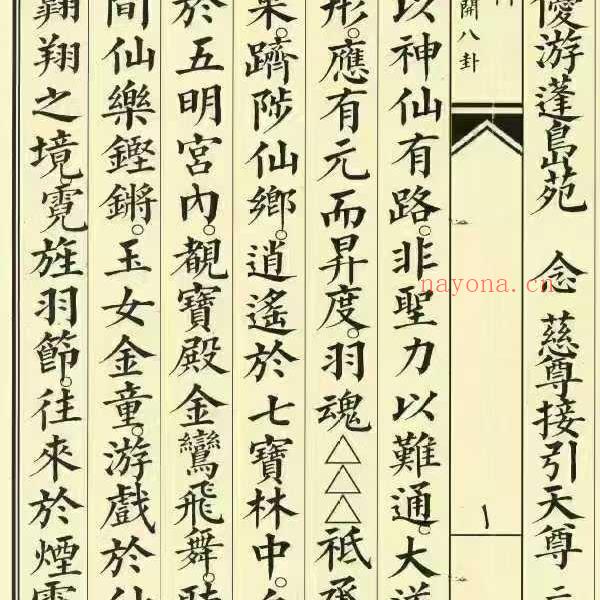 優游蓬島苑 念 慈尊接引天尊 二
開八卦
以神仙有路。非聖力以難通。大道
形。應有元而昇度。羽魂△△△祗承
果。躋陟仙鄉。逍遙於七寶林中。
於五明宮內。覩寶殿金鸞飛舞。聽
間仙樂鏗鏘。玉女金童。游戲於仙
翱翔之境。霓旌羽節。往來於煙霞
nayona.cn